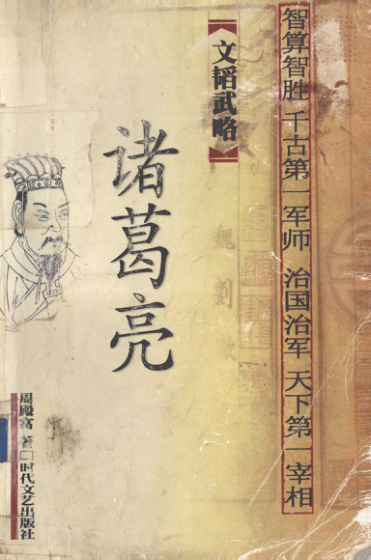 智算智胜 千古第一军师 治国治军 天下第一宰相
《文韬武略》
诸葛亮
周殿富 著 □ 时代文艺出版社